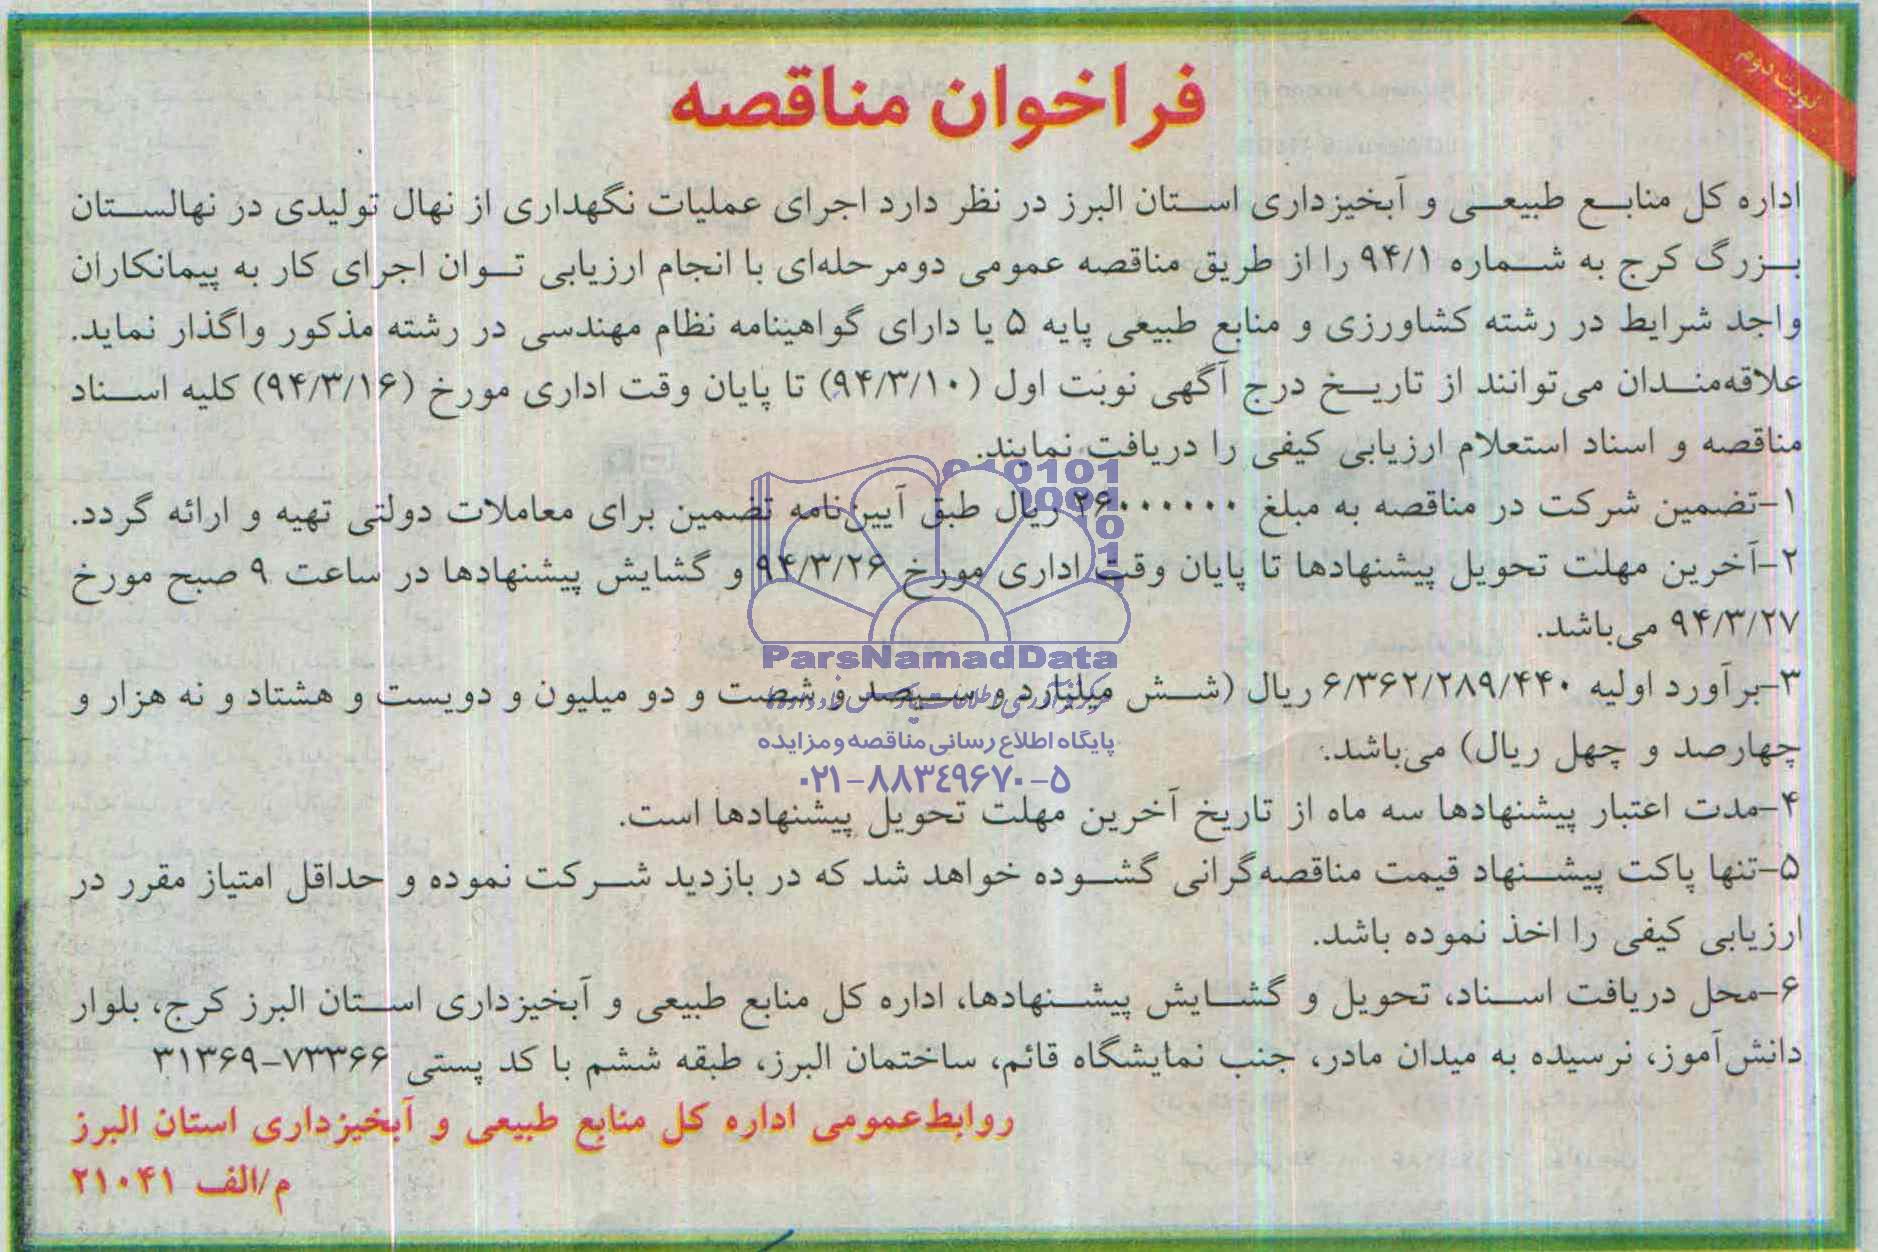 نوبت دوم
فراخوان مناقصه
اداره کل منابع طبیعی و آبخیزداری استان البرز در نظر دارد اجرای عملیات نگهداری از نهال تولیدی در نهالستان
بزرگ کرج به شماره ۹۴/۱ را از طریق مناقصه عمومی دومرحله‌ای با انجام ارزیابی توان اجرای کار به پیمانکاران
واجد شرایط در رشته کشاورزی و منابع طبیعی پایه ۵ یا دارای گواهینامه نظام مهندسی در رشته مذکور واگذار نماید.
علاقه‌مندان می‌توانند از تاریخ درج آگهی نوبت اول (۹۴/۳/۱۰) تا پایان وقت اداری مورخ (۹۴/۳/۱۶) کلیه اسناد
مناقصه و اسناد استعلام ارزیابی کیفی را دریافت نمایند.
۱-تضمین شرکت در مناقصه به مبلغ ۲۶۰۰۰۰۰۰۰ ریال طبق آیین‌نامه تضمین برای معاملات دولتی تهیه و ارائه گردد.
۲-آخرین مهلت تحویل پیشنهادها تا پایان وقت اداری مورخ ۹۴/۳/۲۶ و گشایش پیشنهادها در ساعت ۹ صبح مورخ
۹۴/۳/۲۷ می‌باشد.
ParsNamadData
۳-برآورد اولیه ۶/۳۶۲/۲۸۹/۴۴۰ ریال (شش میلیارد و سیصد و شصت و دو میلیون و دویست و هشتاد و نه هزار و
چهارصد و چهل ریال) می‌باشد.
پایگاه اطلاع رسانی مناقصه و مزایده
۰۲۱-۸۸۳۴۹۶۷۰-۵
۴-مدت اعتبار پیشنهادها سه ماه از تاریخ آخرین مهلت تحویل پیشنهادها است.
۵-تنها پاکت پیشنهاد قیمت مناقصه‌گرانی گشوده خواهد شد که در بازدید شرکت نموده و حداقل امتیاز مقرر در
ارزیابی کیفی را اخذ نموده باشد.
۶-محل دریافت اسناد، تحویل و گشایش پیشنهادها، اداره کل منابع طبیعی و آبخیزداری استان البرز کرج، بلوار
دانش‌آموز، نرسیده به میدان مادر، جنب نمایشگاه قائم، ساختمان البرز، طبقه ششم با کد پستی ۷۳۳۶۶-۳۱۳۶۹
روابط‌عمومی اداره کل منابع طبیعی و آبخیزداری استان البرز
م/الف ۲۱۰۴۱